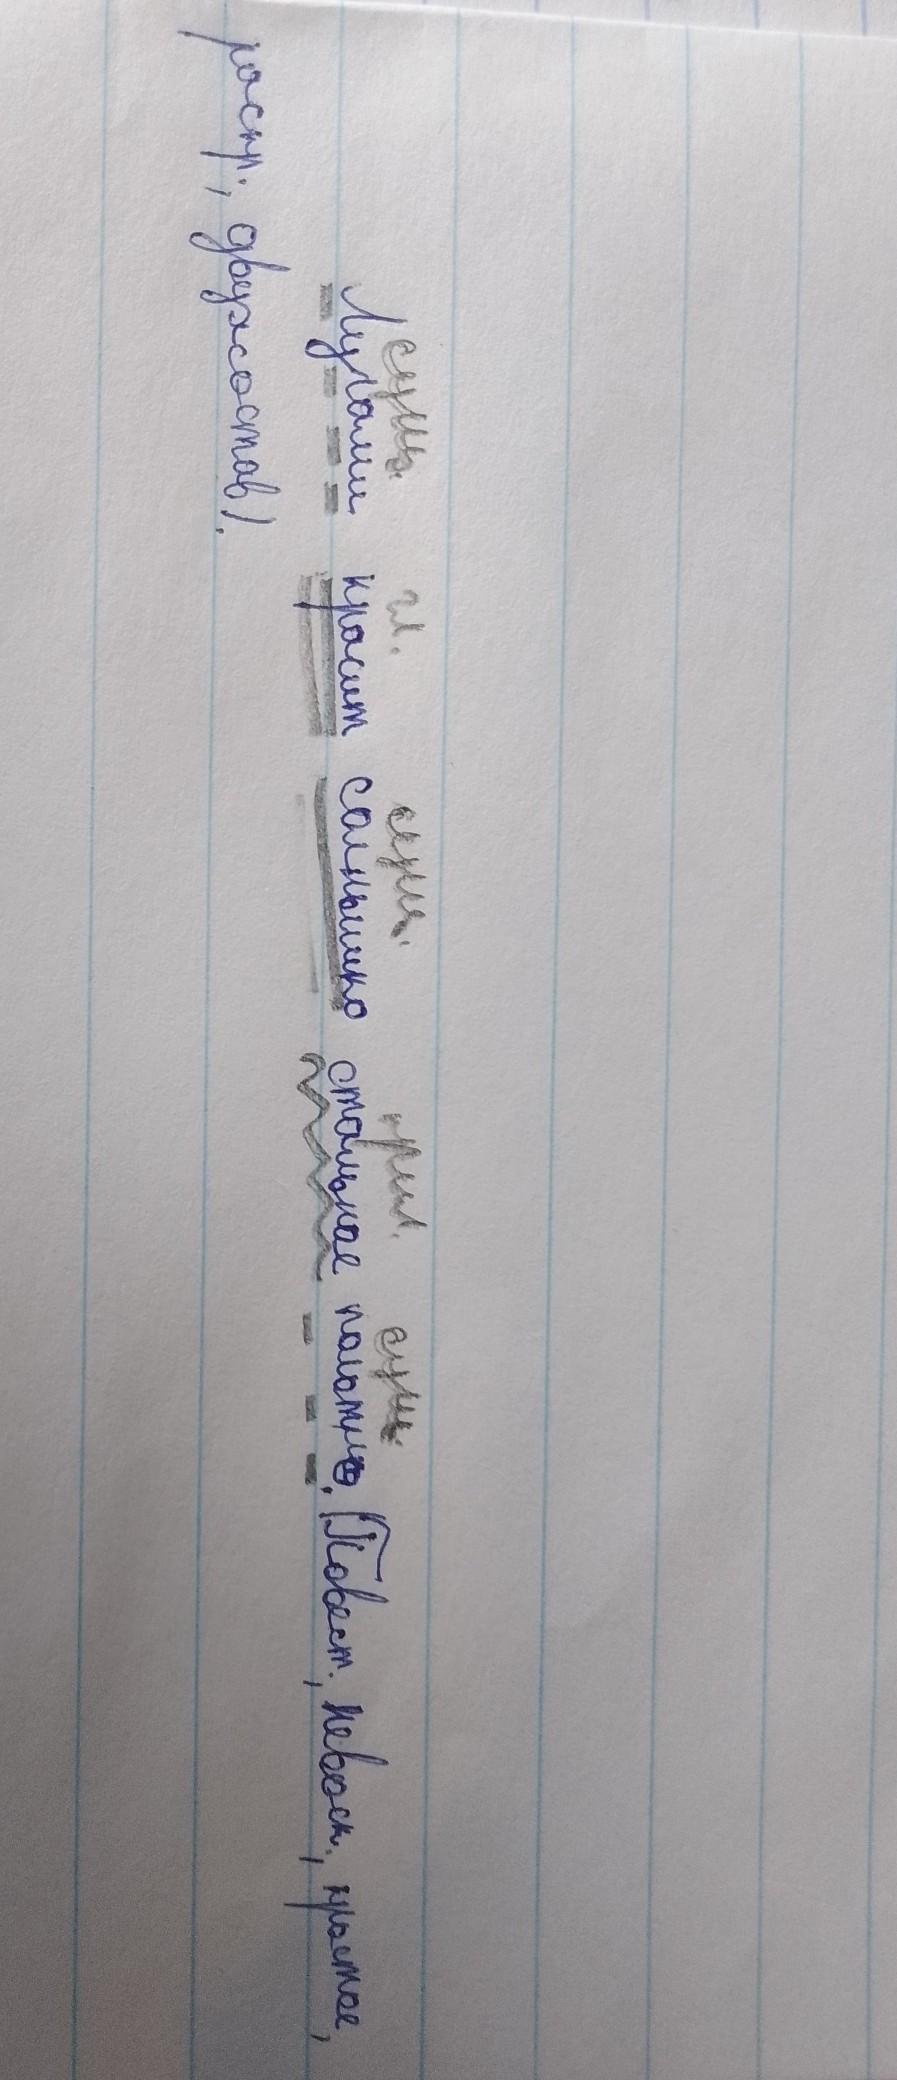 сущ. гл. сущ. прил. сущ.
Лучами красит солнышко стальное полотно. (Повест., невоск., простое,
распр., двухсостав).